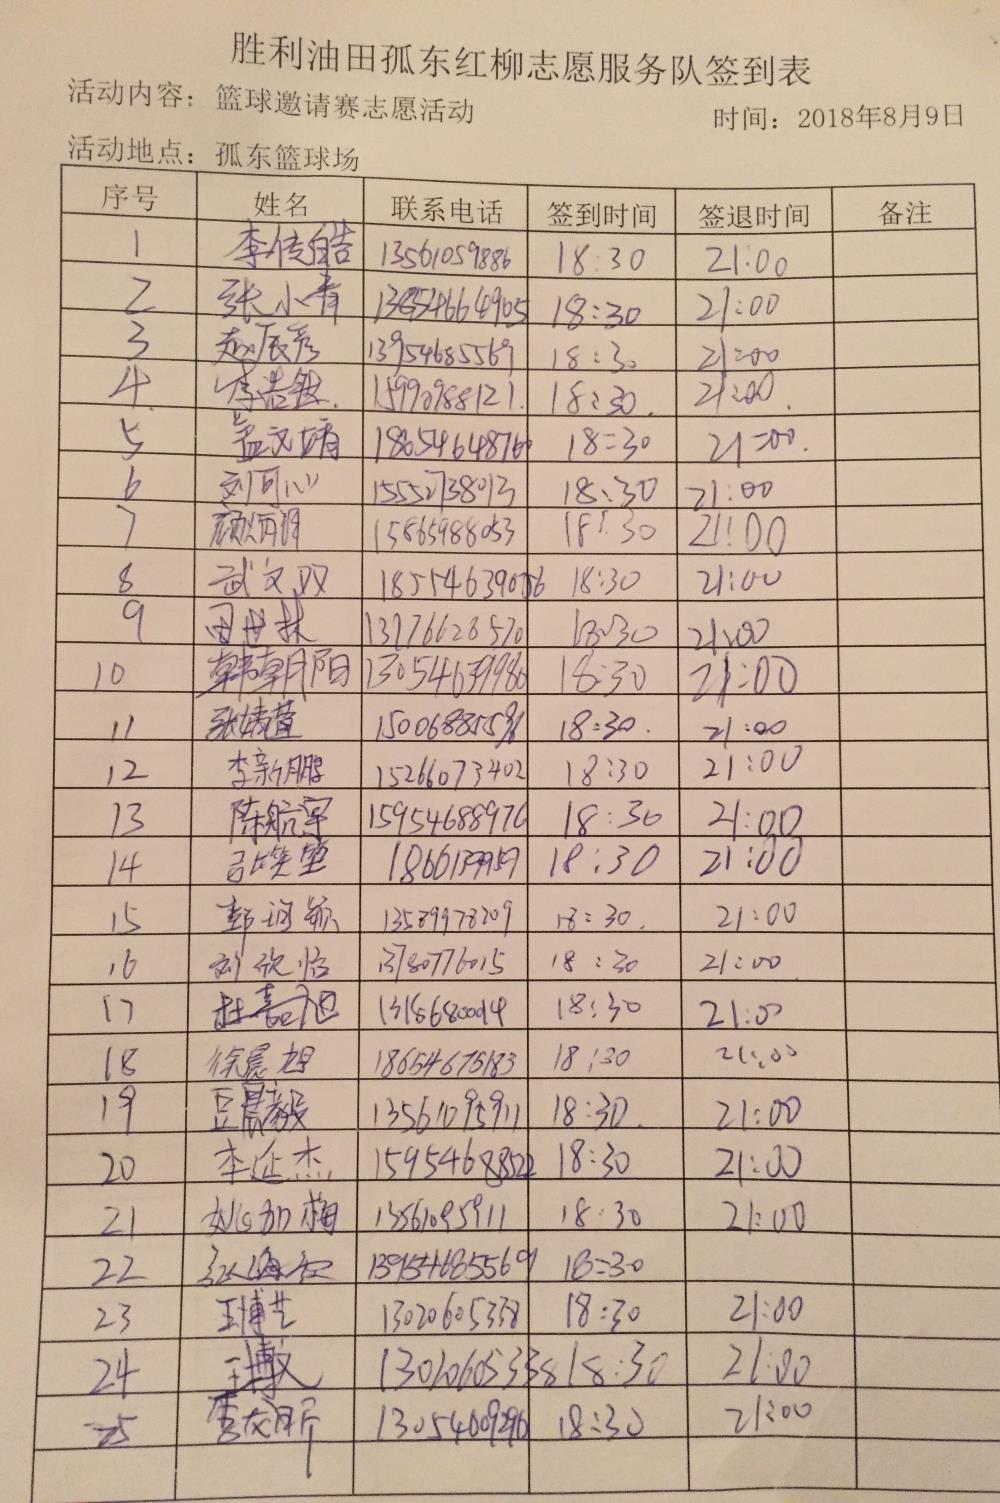 胜利油田孤东红柳志愿服务队签到表
活动内容：篮球邀请赛志愿活动
时间：2018年8月9日
活动地点：孤东篮球场
序号 姓名 联系电话 签到时间 签退时间 备注
1 李传皓 13561059886 18:30 21:00
2 张小青 18:30 21:00
3 赵辰彦 13954685569 18:30 21:00
4 李浩 15990988121. 18:30. 21:00.
5 孟文婧 18654648760 18:30 21:00.
6 刘可心 15552738013 18:30 21:00
7 15865988053 18:30 21:00
8 武文双 18:30 21:00
9 田世林 13176628570 18:30 21:00
10 韩朝阳 13054639986 18:30 21:00
11 张婧萱 18:30. 21:00
12 李新鹏 15266073402 18:30 21:00
13 陈航宇 15954688976 18:30 21:00
14 18:30 21:00
15 18:30. 21:00
16 刘欣怡 13780776015 18:30 21:00
17 杜嘉旭 18:30 21:00
18 徐晨旭 18654675183 18:30 21:00
19 豆晨毅 13561095911 18:30. 21:00
20 李延杰 15954688522 18:30 21:00
21 梅 13561095911 18:30 21:00
22 13954685569 18:30
23 王博艺 13020605338 18:30 21:00
24 王博文 13020605338 18:30 21:00
25 13054609296 18:30 21:00